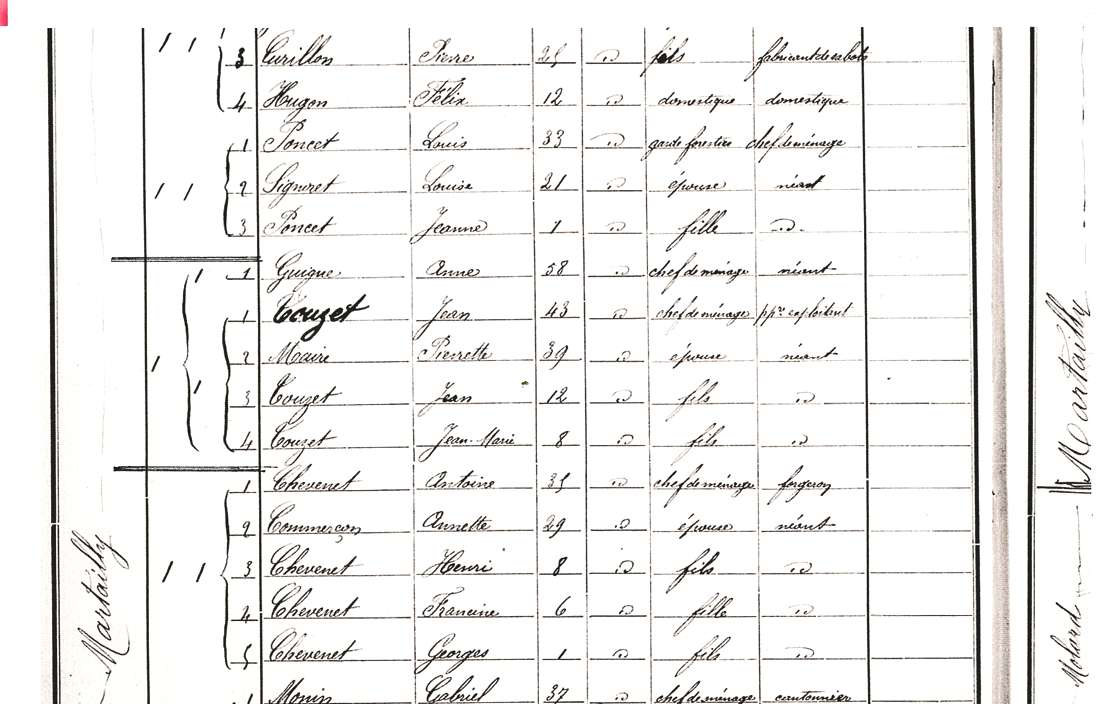 1 1
3 Curillon Pierre 25 d fils fabricant de sabots
4 Hugon Félix 12 d domestique domestique
1 Poncet Louis 33 d garde forestier chef de ménage
1 1 2 Signoret Louise 21 d épouse néant
3 Poncet Jeanne 1 d fille d
1 1 Guigue Anne 58 d chef de ménage néant
1 Touzet Jean 43 d chef de ménage ppre exploitant
1 2 Maire Pierrette 39 d épouse néant
1 3 Touzet Jean 12 d fils d
4 Touzet Jean-Marie 8 d fils d
1 Chevenet Antoine 35 d chef de ménage forgeron
2 Commerçon Annette 29 d épouse néant
1 1 3 Chevenet Henri 8 d fils d
4 Chevenet Francine 6 d fille d
5 Chevenet Georges 1 d fils d
1 Monin Gabriel 37 d chef de ménage cantonnier
Martailly
Martailly
Mohard